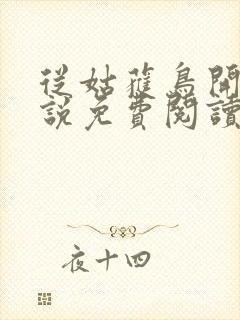 從姑蘿鳥開
說免費閱讀
夜十四